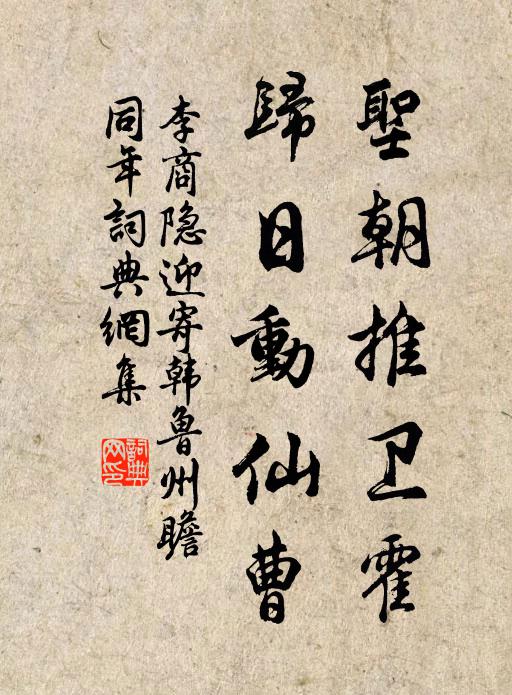 聖朝推卫霍
歸日動仙曹
李商隐迎寄韩鲁州瞻
同年詞典網集
詞典网印